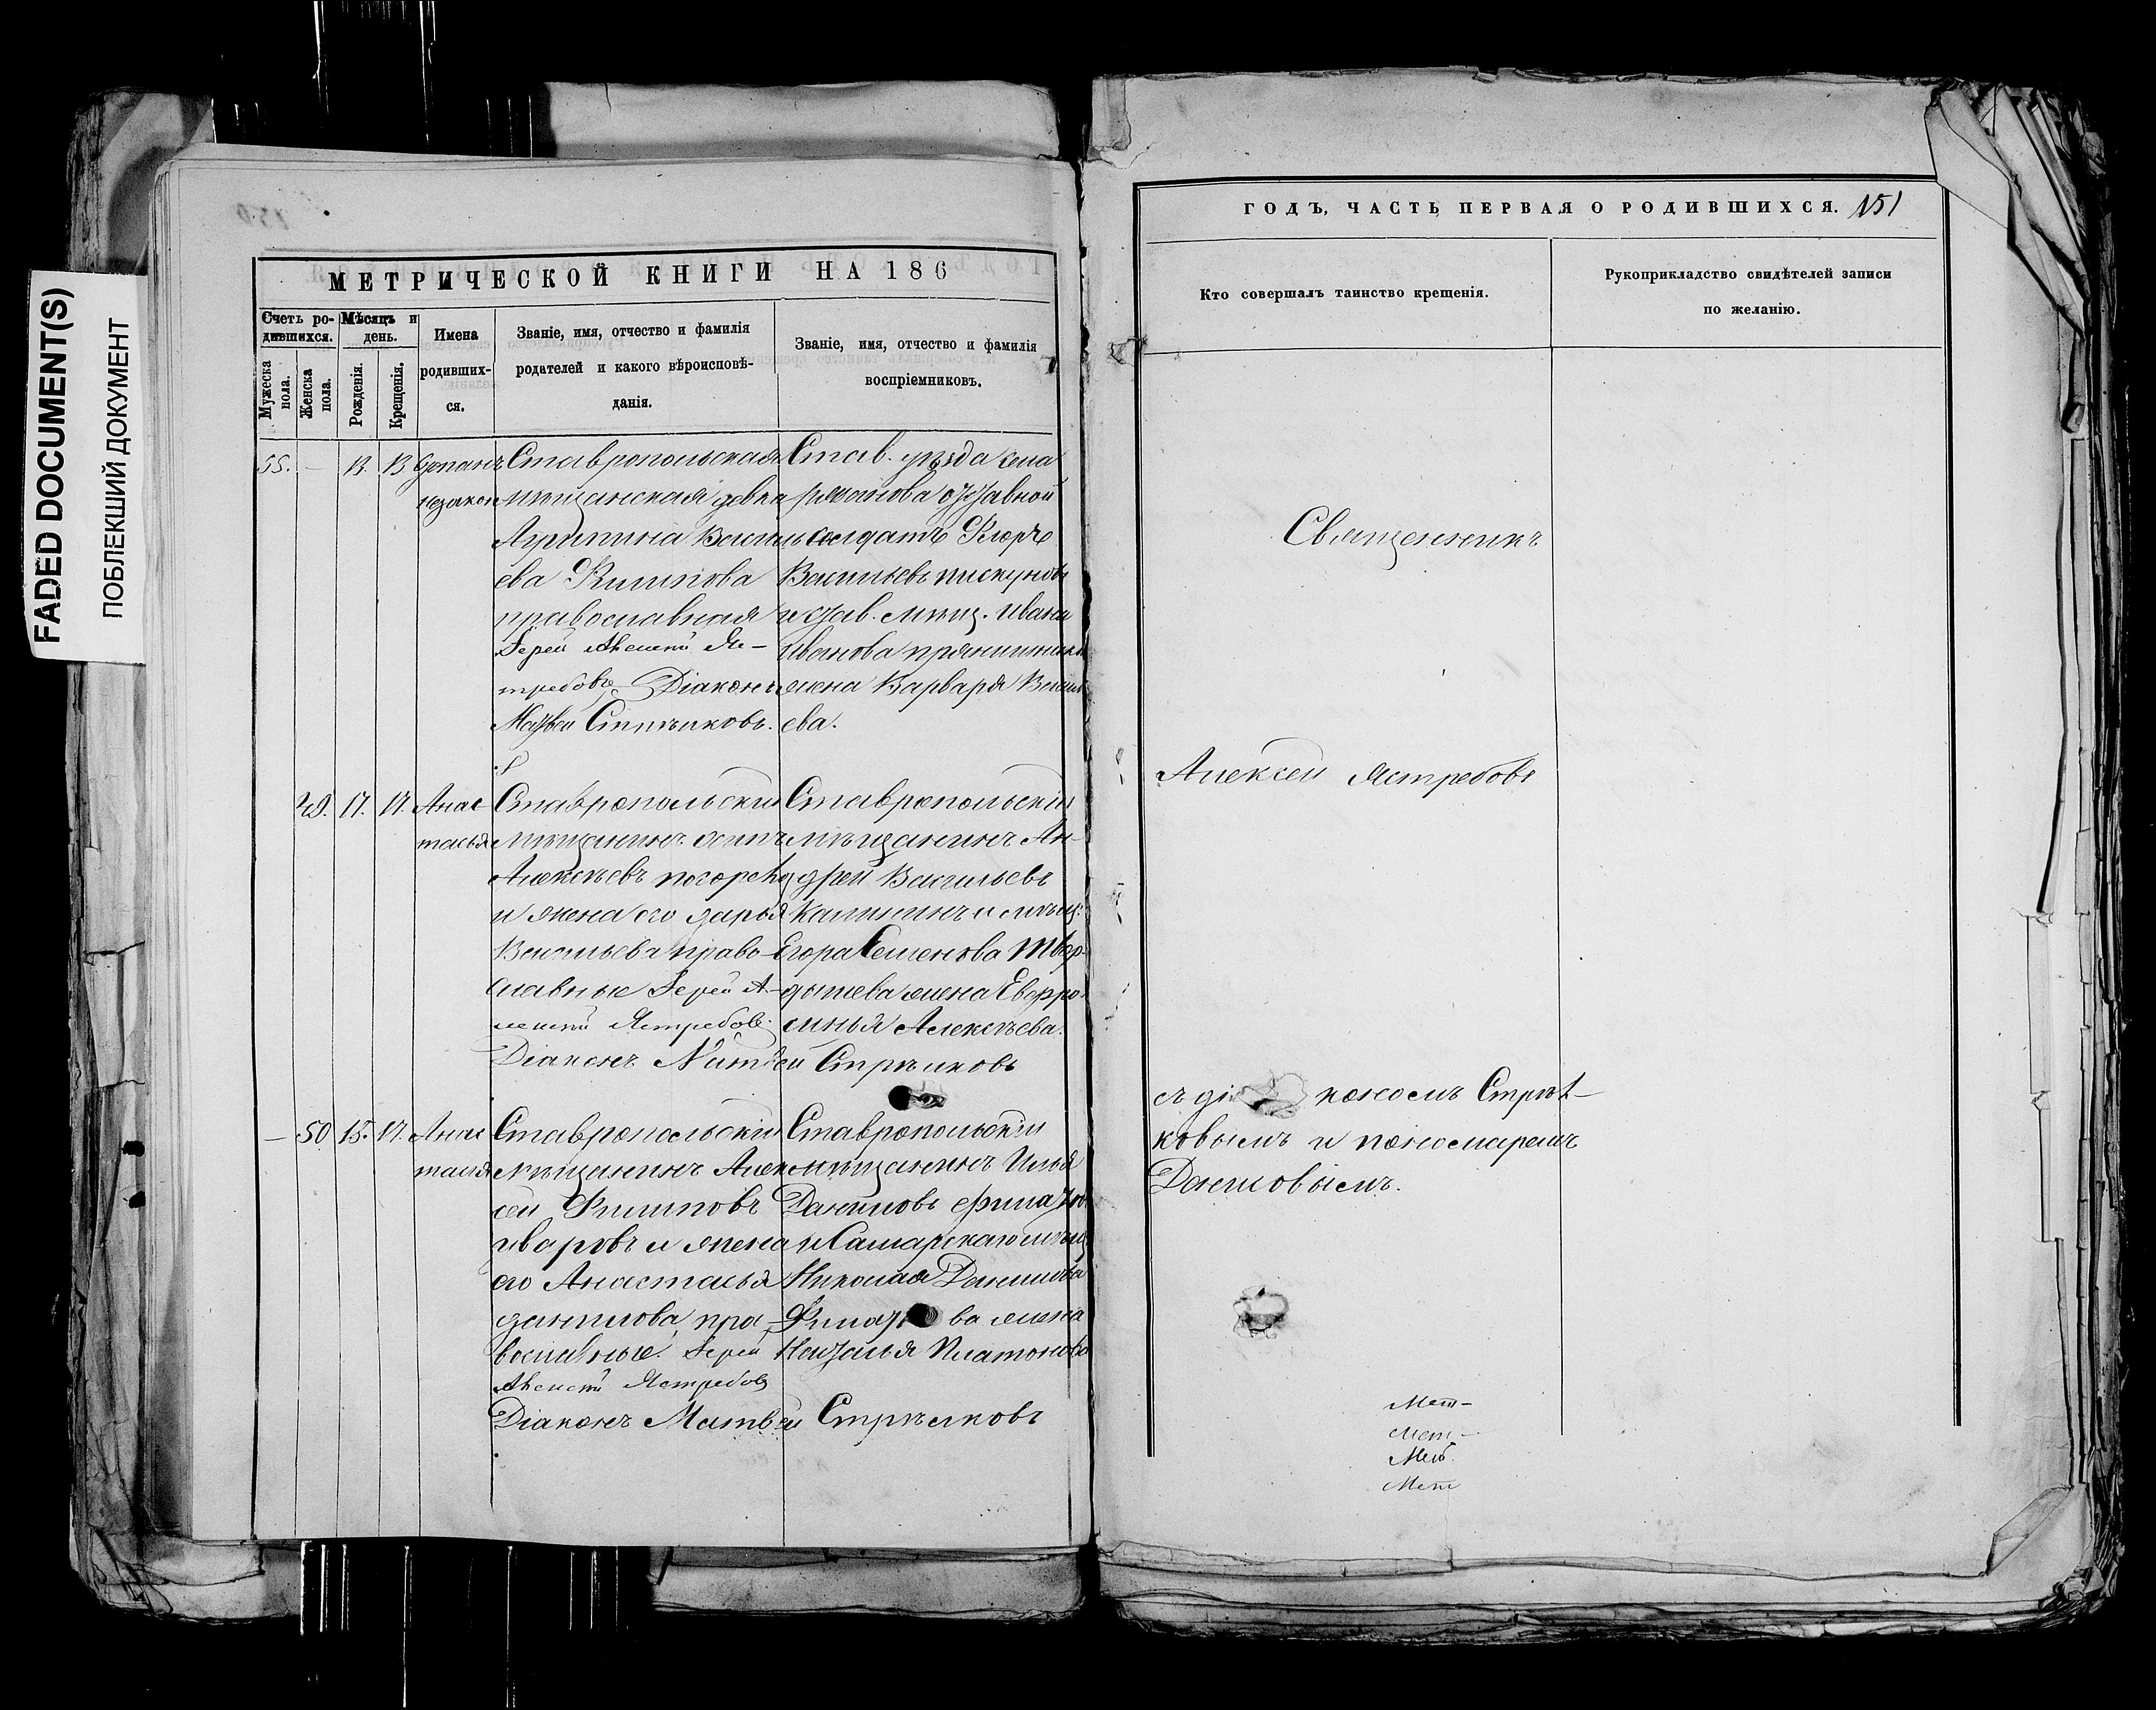 FADED DOCUMENT(S)
ПОБЛЕКШИЙ ДОКУМЕНТ
МЕТРИЧЕСКОЙ КНИГИ НА 186
Счетъ ро-
дившихся.
Мужеска пола.
Женска пола.
Мѣсяцъ и
день.
Рожденія.
Крещенія.
Имена
родивших-
ся.
Званіе, имя, отчество и фамилія
родателей и какого вѣроисповѣ-
данія.
Званіе, имя, отчество и фамилія
воспріемниковъ.
55. — 13. 13
незакон
Ставропольская
мѣщанская девка
Агрипина Василь
ева Филипова
православная
Іерей Алексѣй Яс-
требовъ Діаконъ
Матвей Стрѣлковъ.
Став. уѣзда села
солдатъ
Васильевъ пискуновъ
и став. мѣщ. Ивана
Иванова
жена Варвара Василь
ева.
49. 17. 17. Анас-
тасья
Ставропольскій
мѣщанинъ осипъ
Алексѣевъ
и жена его дарья
Васильева право-
славные Іерей А-
лексѣй Ястребовъ
Діаконъ Матвей Стрѣлковъ
Ставропольскій
мѣщанинъ Ан-
дрей Васильевъ
Калининъ и мѣщ.
Егора Семенова Твер-
дышева жена Евфро-
синья Алексѣева.
— 50 15. 17. Анас
тасия
Ставропольскій
мѣщанинъ Алек
сей Филиповъ
и жена
его Анастасья
данилова, пра-
вославные. Іерей
Алексѣй Ястребовъ
Діаконъ Матвей Стрѣлковъ
Ставропольскій
мѣщанинъ Илья
Даниловъ
и Самарскаго мѣщ
Николая Данилова
ва жена
Наталья Платонова
ГОДЪ, ЧАСТЬ ПЕРВАЯ О РОДИВШИХСЯ. 151
Кто совершалъ таинство крещенія.
Рукоприкладство свидѣтелей записи
по желанію.
Священникъ
Алексей Ястребовъ
съ діа кономъ Стрѣл-
ковымъ и пономаремъ
Даниловымъ.